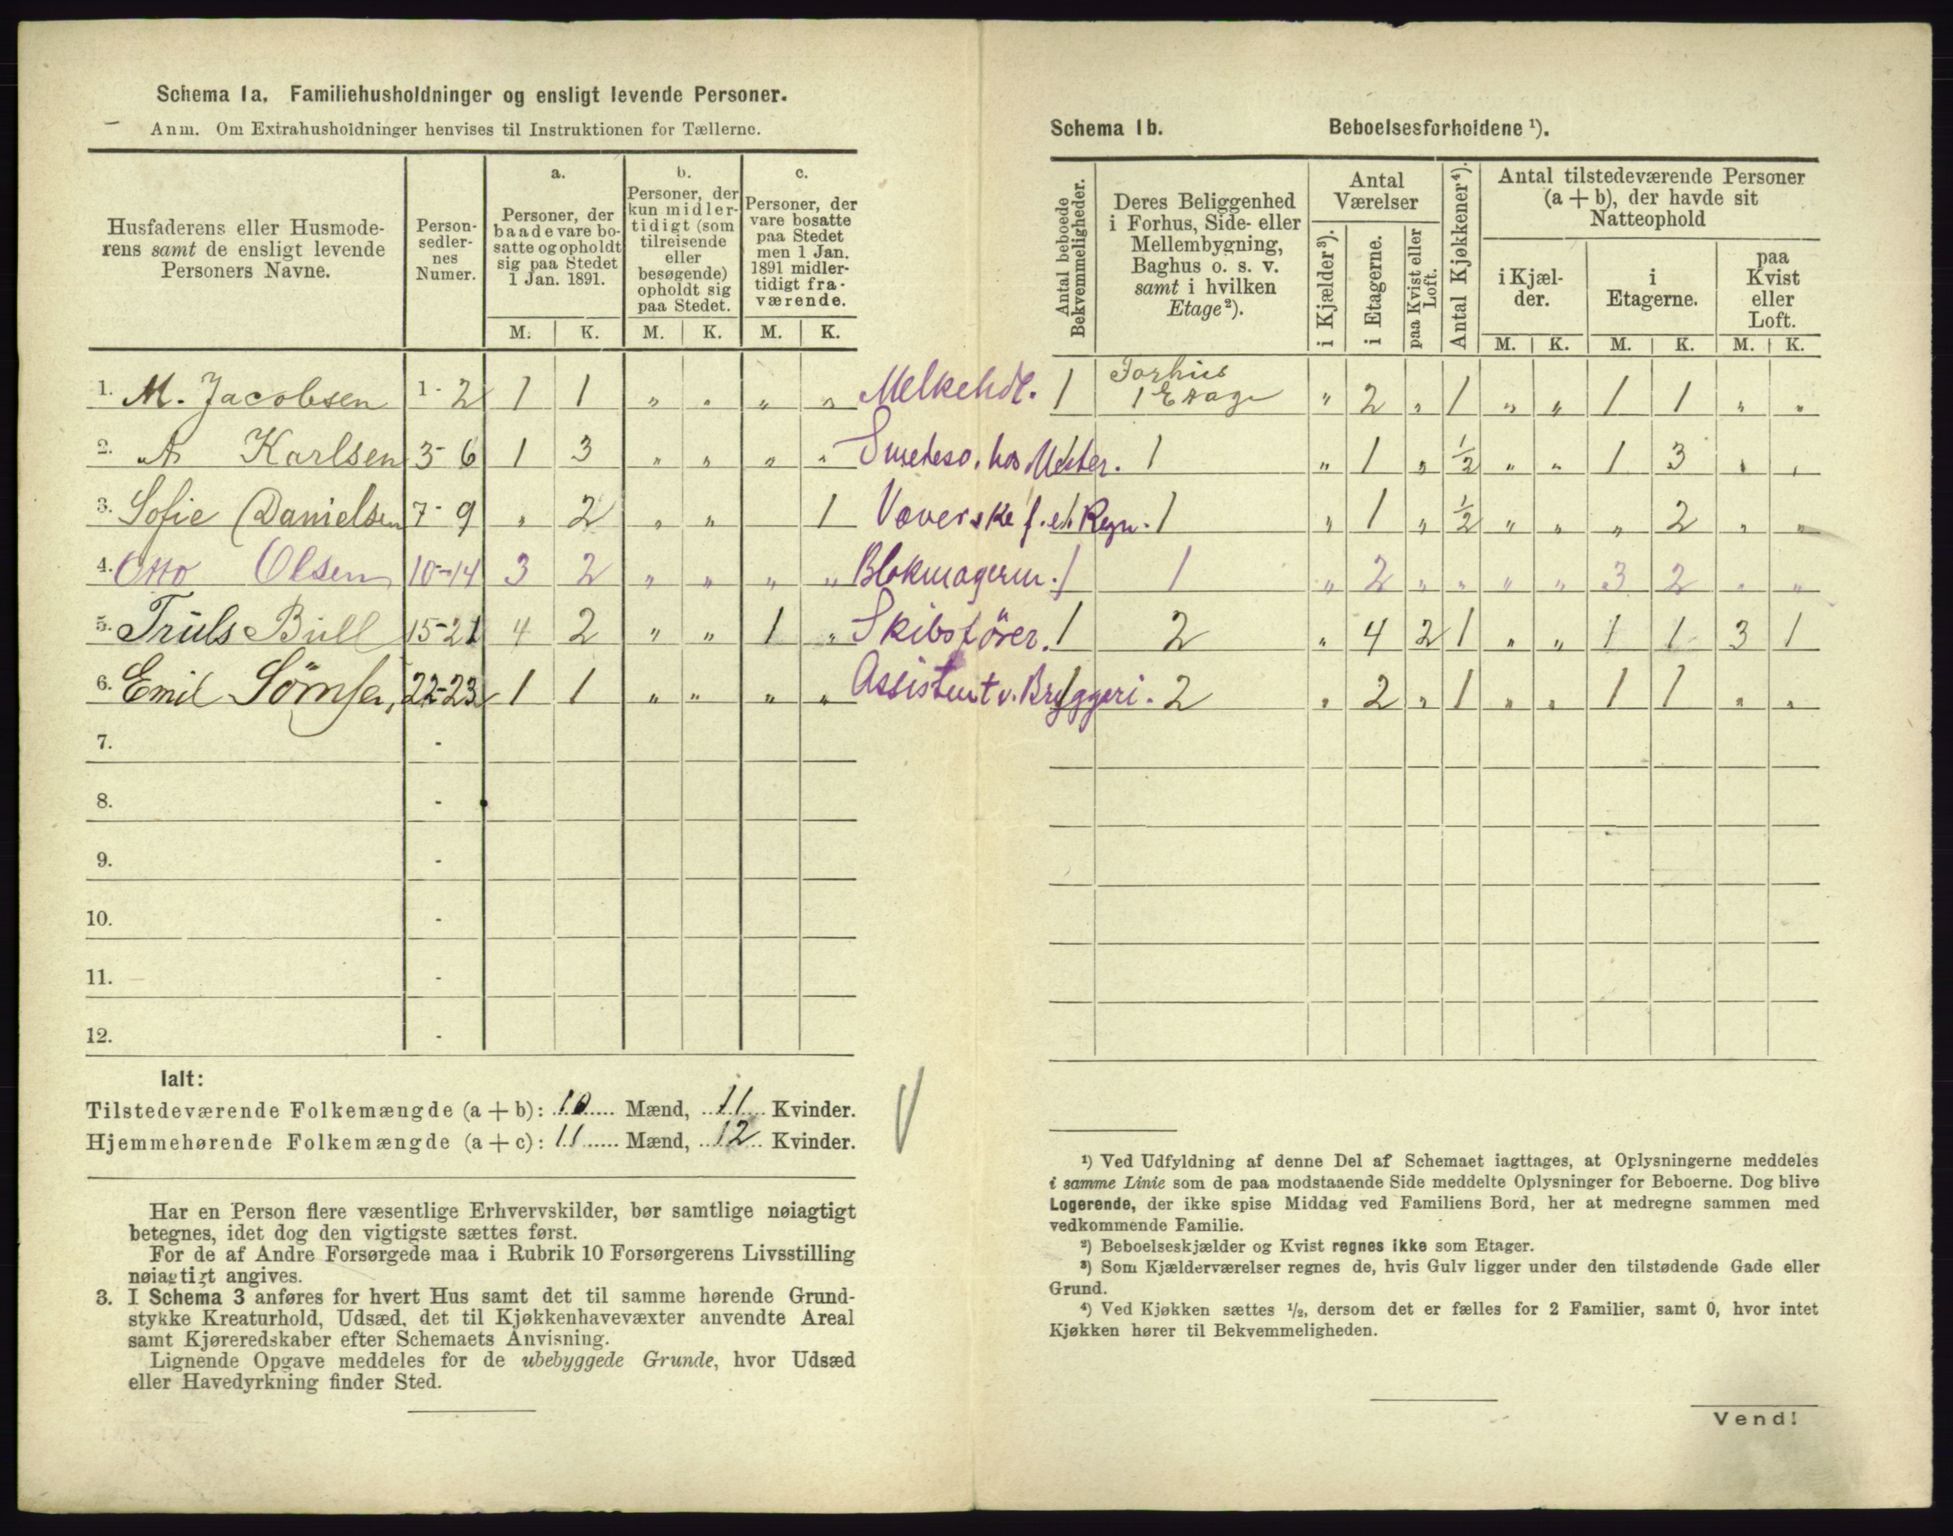 Schema 1a. Familiehusholdninger og ensligt levende Personer.
Anm. Om Extrahusholdninger henvises til Instruktionen for Tællerne.
Husfaderens eller Husmoderens samt de ensligt levende Personers Navne.
Person-sedler-nes Numer.
a.
Personer, der baade vare bosatte og opholdt sig paa Stedet 1 Jan. 1891.
b.
Personer, der kun midlertidigt (som tilreisende eller besøgende) opholdt sig paa Stedet.
c.
Personer, der vare bosatte paa Stedet men 1 Jan. 1891 midlertidigt fraværende.
M. K. M. K. M. K.
1. M. Jacobsen 1-2 1 1 " " " " Melkehdl.
2. A Karlsen 3-6 1 3 " " " " Smedesv. hos Mester.
3. Sofie Danielsen 7-9 " 2 " " 1 Væverske f. eg. Regn.
4. Otto Olsen 10-14 3 2 " " " " Blokmagerm.
5. Truls Bull 15-21 4 2 " " 1 " Skibsfører.
6. Emil 22-23 1 1 " " " " Assistent v. Bryggeri.
7. -
8. -
9. -
10. -
11. -
12. -
Ialt:
Tilstedeværende Folkemængde (a + b): 10 Mænd, 11 Kvinder.
Hjemmehørende Folkemængde (a + c): 11 Mænd, 12 Kvinder.
Har en Person flere væsentlige Erhvervskilder, bør samtlige nøiagtigt
betegnes, idet dog den vigtigste sættes først.
For de af Andre Forsørgede maa i Rubrik 10 Forsørgerens Livsstilling
nøiagtigt angives.
3. I Schema 3 anføres for hvert Hus samt det til samme hørende Grund-
stykke Kreaturhold, Udsæd, det til Kjøkkenhavevæxter anvendte Areal
samt Kjøreredskaber efter Schemaets Anvisning.
Lignende Opgave meddeles for de ubebyggede Grunde, hvor Udsæd
eller Havedyrkning finder Sted.
Schema 1b. Beboelsesforholdene ¹).
Antal beboede Bekvemmeligheder.
Deres Beliggenhed i Forhus, Side- eller Mellembygning, Baghus o. s. v. samt i hvilken Etage²).
Antal Værelser
i Kjælder³).
i Etagerne.
paa Kvist eller Loft.
Antal Kjøkkener⁴).
Antal tilstedeværende Personer (a + b), der havde sit Natteophold
i Kjælder.
i Etagerne.
paa Kvist eller Loft.
M. K. M. K. M. K.
1 Forhus 1 Etage " 2 " 1 " " 1 1 " "
1 1 " 1 " ½ " " 1 3 " "
1 1 " 1 " ½ " " " 2 " "
1 1 " 2 " " " " 3 2 " "
1 2 " 4 2 1 " " 1 1 3 1
1 2 " 2 " 1 " " 1 1 " "
¹) Ved Udfyldning af denne Del af Schemaet iagttages, at Oplysningerne meddeles
i samme Linie som de paa modstaaende Side meddelte Oplysninger for Beboerne. Dog blive
Logerende, der ikke spise Middag ved Familiens Bord, her at medregne sammen med
vedkommende Familie.
²) Beboelseskjælder og Kvist regnes ikke som Etager.
³) Som Kjælderværelser regnes de, hvis Gulv ligger under den tilstødende Gade eller
Grund.
⁴) Ved Kjøkken sættes ½, dersom det er fælles for 2 Familier, samt 0, hvor intet
Kjøkken hører til Bekvemmeligheden.
Vend!